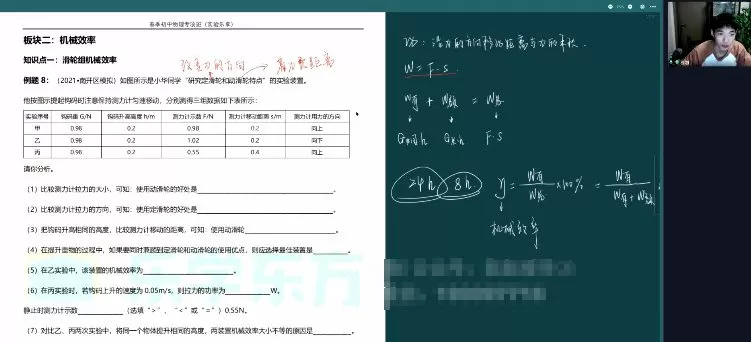 春季初中物理专项班（实验乐享）
板块二：机械效率
知识点一：滑轮组机械效率
例题 8：（2021•南开区模拟）如图所示是小华同学“研究定滑轮和动滑轮特点”的实验装置。
他按图示提起钩码时注意保持测力计匀速移动，分别测得三组数据如下表所示：
实验序号 钩码重 G/N 钩码升高高度 h/m 测力计示数 F/N 测力计移动距离 s/m 测力计用力的方向
甲 0.98 0.2 0.98 0.2 向上
乙 0.98 0.2 1.02 0.2 向下
丙 0.98 0.2 0.55 0.4 向上
请你分析。
（1）比较测力计拉力的大小，可知：使用动滑轮的好处是
（2）比较测力计拉力的方向，可知：使用定滑轮的好处是
（3）把钩码升高相同的高度，比较测力计移动的距离，可知：使用动滑轮
（4）在提升重物的过程中，如果要同时兼顾到定滑轮和动滑轮的使用优点，则应选择最佳装置是
（5）在乙实验中，该装置的机械效率为 。
（6）在丙实验时，若钩码上升的速度为 0.05m/s，则拉力的功率为 W。
静止时测力计示数 （选填“>”、“<”或“=”）0.55N。
（7）对比乙、丙两次实验中，将同一个物体提升相同的高度，两装置机械效率大小不等的原因是 。
W = F·S
W有 + W额 = W总
F·S
24h 8h η = W有/W总 ×100% = W有/W有+W额
机械效率